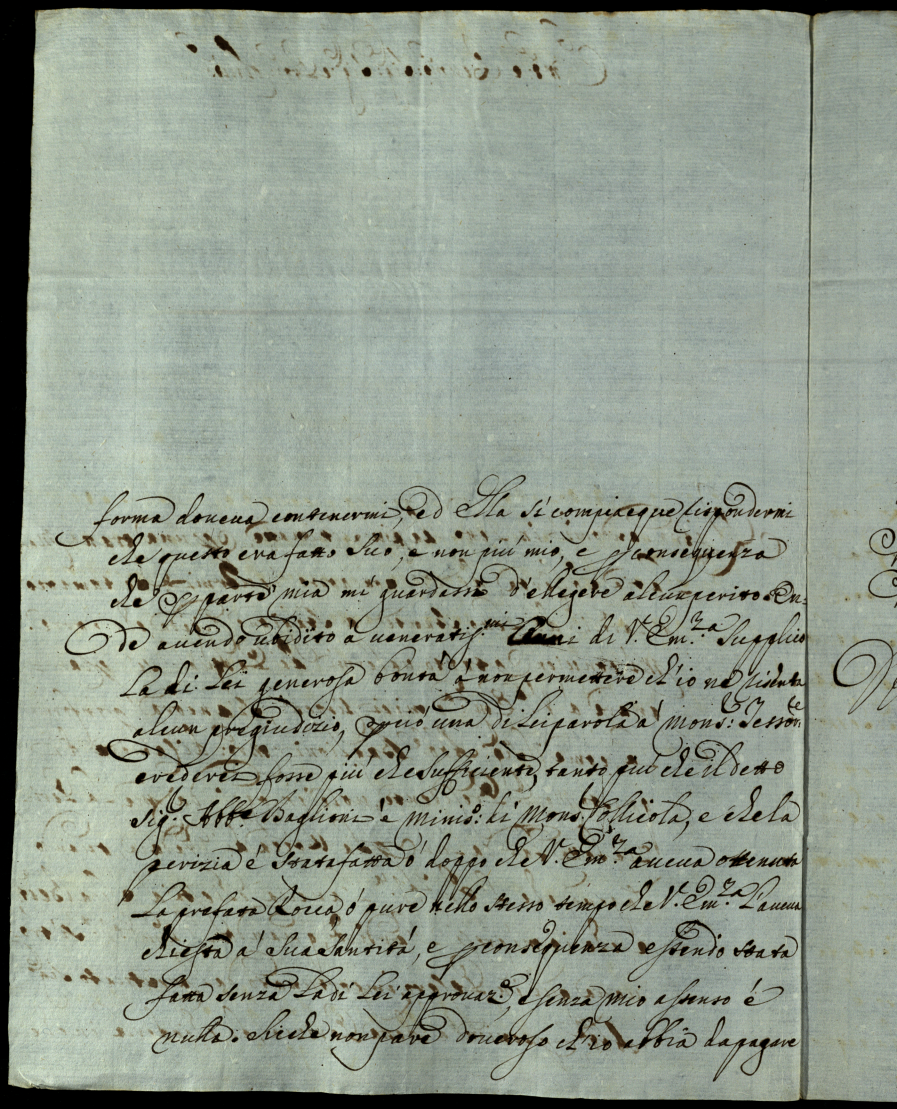 forma doueua contenermi, ed Ella si compiacque rispondermi
che questo era fatto Suo, e non più mio, e p conseguenza
che p parte mia mi guardassi d'ellegere alcun perito: On-
de auendo ubidito a ueneratis.mi Cenni di V. Em.za Supplico
La di Lei generosa bontà à non permettere ch'io ne risenta
alcun pregiudizio, p ciò una di Lei parola à Mons.: Tesso.re
crederei fosse più che sufficiente, tanto più che il detto
Sig.r Abb.e Baglioni è minis.o: di Mons. Collicola, e che la
perizia è stata fatta ò doppo che V. Em.za aueua ottenuta
La prefata Rocca, ò pure nello stesso tempo che V. Em.za L'aueua
chiesta à Sua Santità, e p conseguenza essendo stata
fatta senza La di Lei approuaz.e, e senza mio assenso è
nulla. Siche non pare doueroso ch'io abbia da pagare